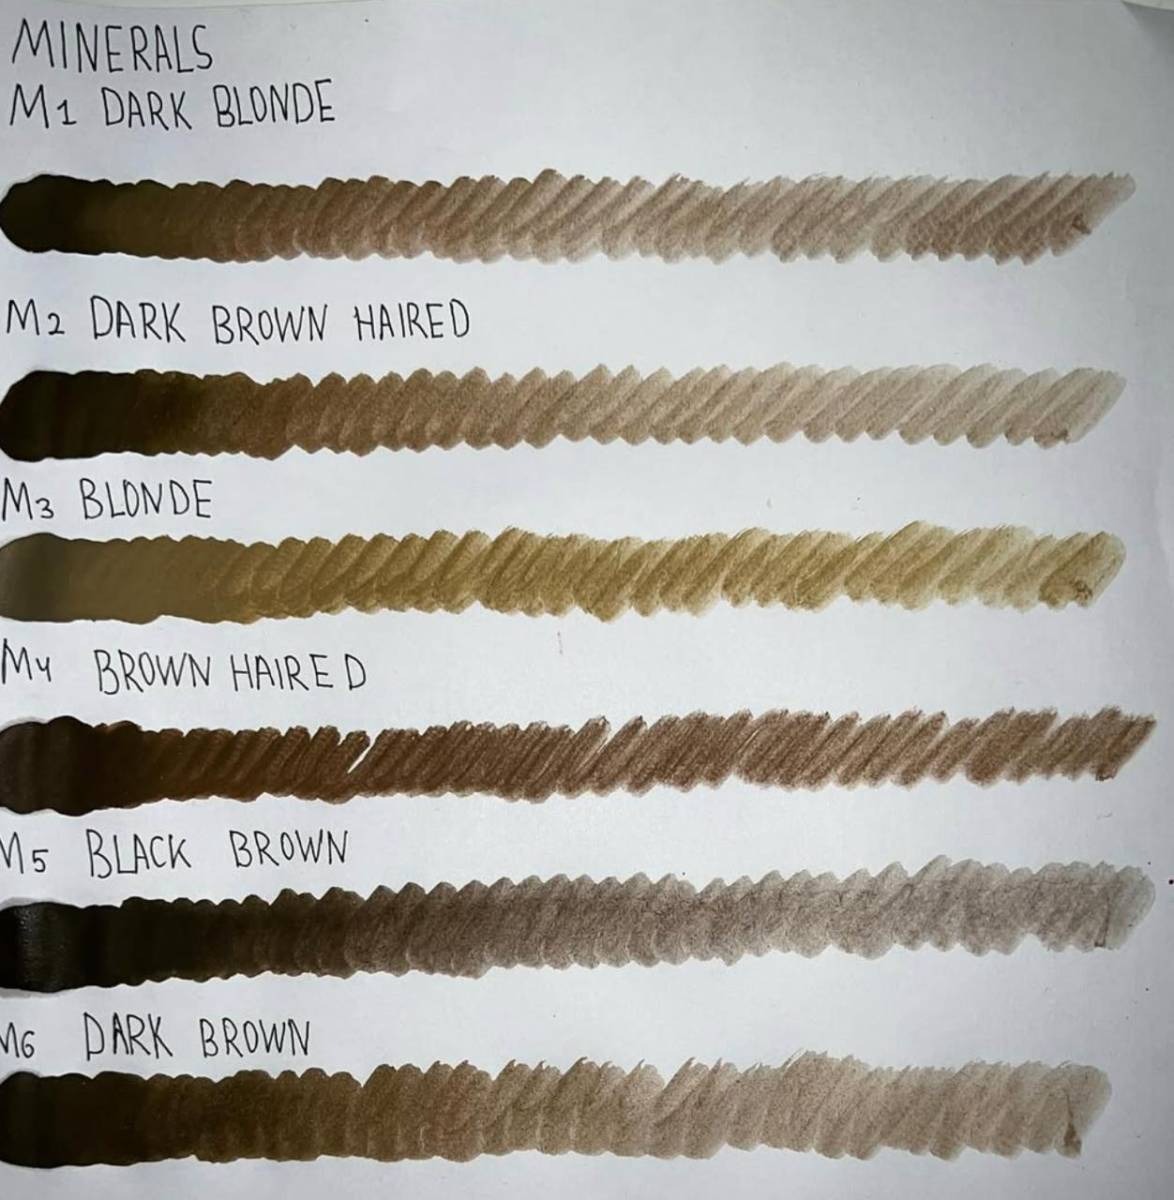 MINERALS
M1 DARK BLONDE
M2 DARK BROWN HAIRED
M3 BLONDE
M4 BROWN HAIRED
M5 BLACK BROWN
M6 DARK BROWN